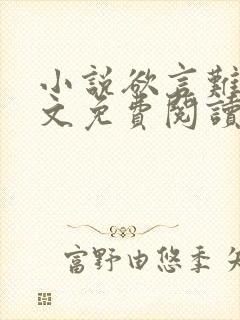 小説欲言難
文免費閱讀
富野由悠季